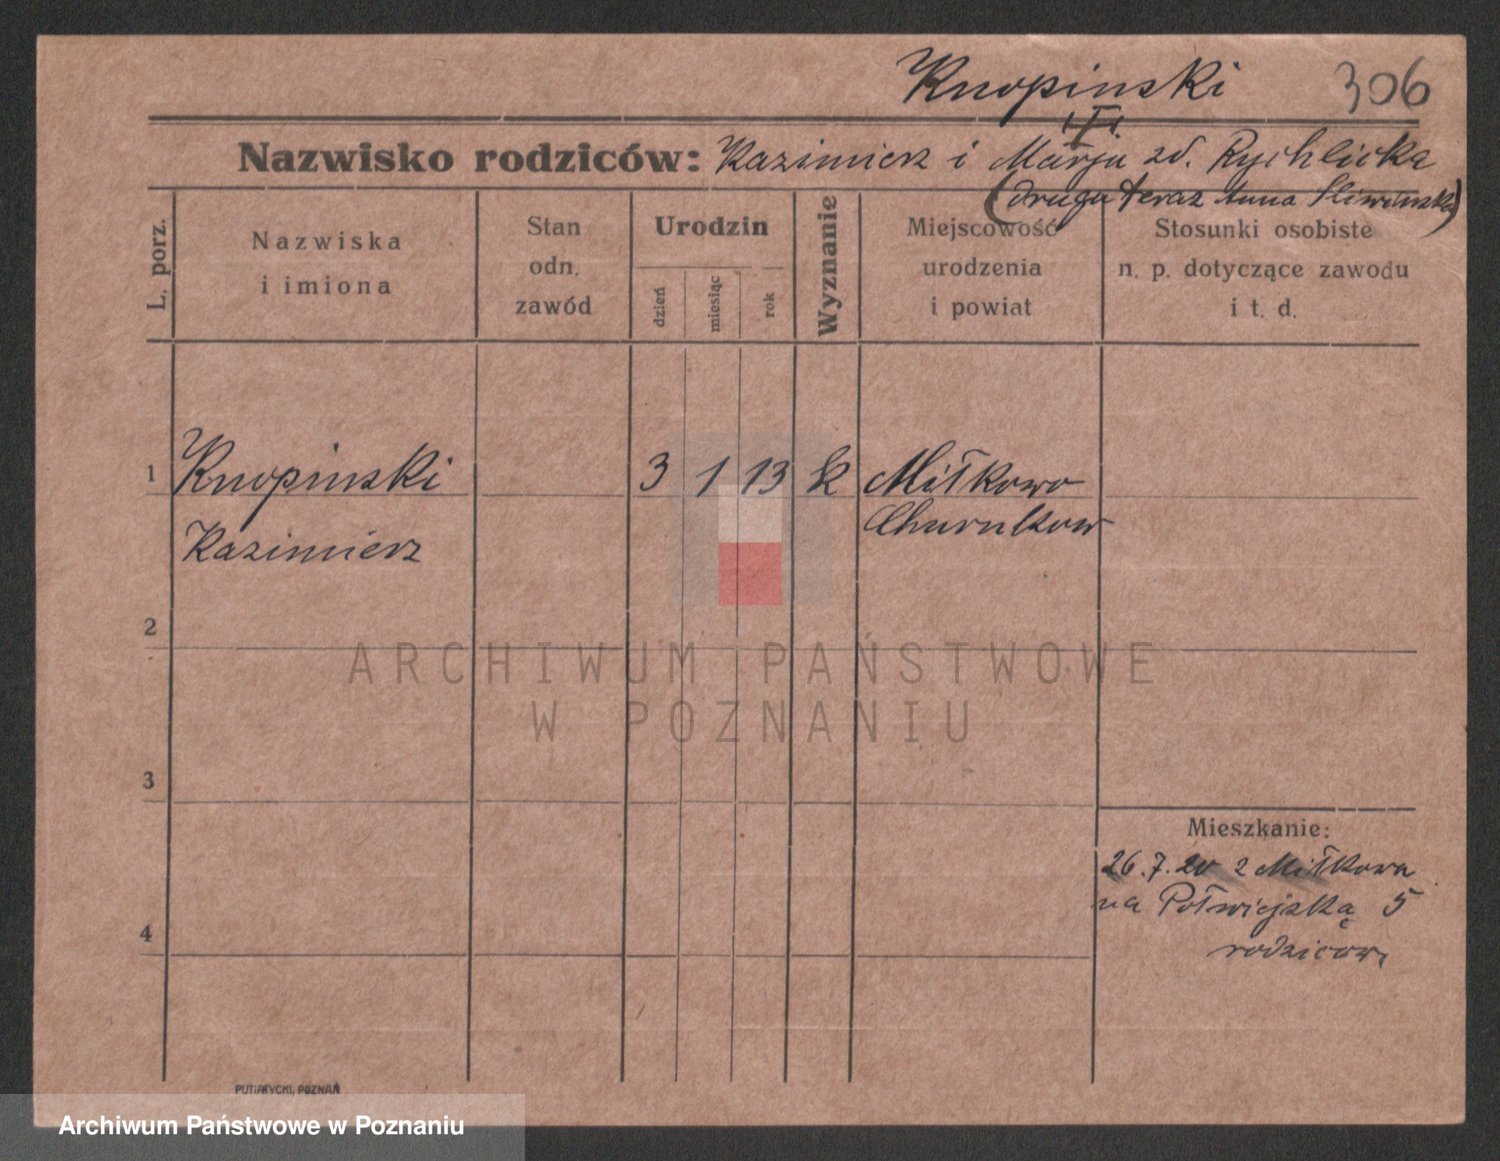 Knopinski 306
I
Nazwisko rodziców: Kazimierz i Marja zd. Rychlicka
(druga teraz Anna Śliwińska)
L. porz.
Nazwiska
i imiona
Stan
odn.
zawód
Urodzin
dzień
miesiąc
rok
Wyznanie
Miejscowość
urodzenia
i powiat
Stosunki osobiste
n. p. dotyczące zawodu
i t. d.
1 Knopinski 3 1 13 k Miłkowo
Kazimierz
2
ARCHIWUM PAŃSTWOWE
W POZNANIU
3
Mieszkanie:
26.7.20 z Miłkowa
na Półwiejską 5
rodziców
4
PUTIATYCKI, POZNAŃ
Archiwum Państwowe w Poznaniu